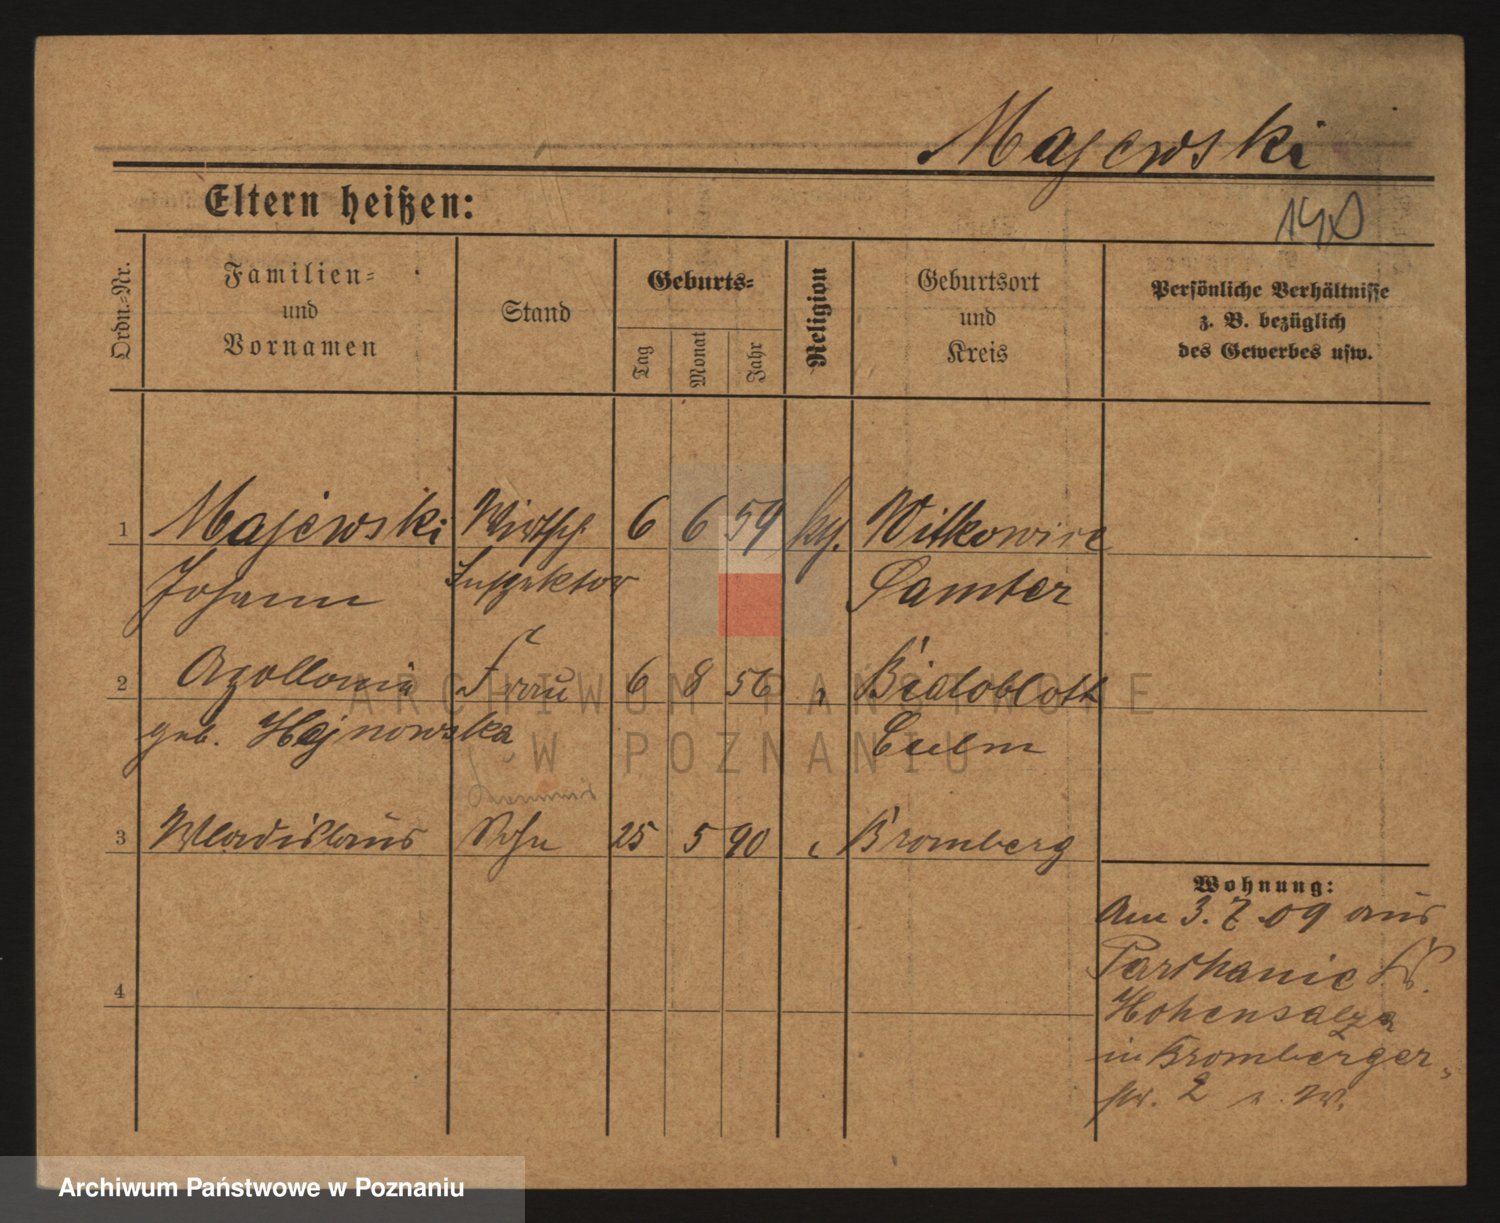 Majewski
Eltern heißen:
140
Ordn.-Nr.
Familien-
und
Vornamen
Stand
Geburts-
Tag
Monat
Jahr
Religion
Geburtsort
und
Kreis
Persönliche Verhältnisse
z. B. bezüglich
des Gewerbes usw.
1 Majewski Wirtsch. 6 6 59 Witkowice
Johann Inspektor Samter
2 Apollonia Frau 6 8 56 " Bialoblott
geb. Hajnowska Culm
3 Wladislaus Sohn 25 5 90 " Bromberg
4
Wohnung:
Am 3.7.09 aus
Parchanie Kr.
Hohensalza
in Bromberger-
str. 2
ARCHIWUM PAŃSTWOWE
W POZNANIU
Archiwum Państwowe w Poznaniu